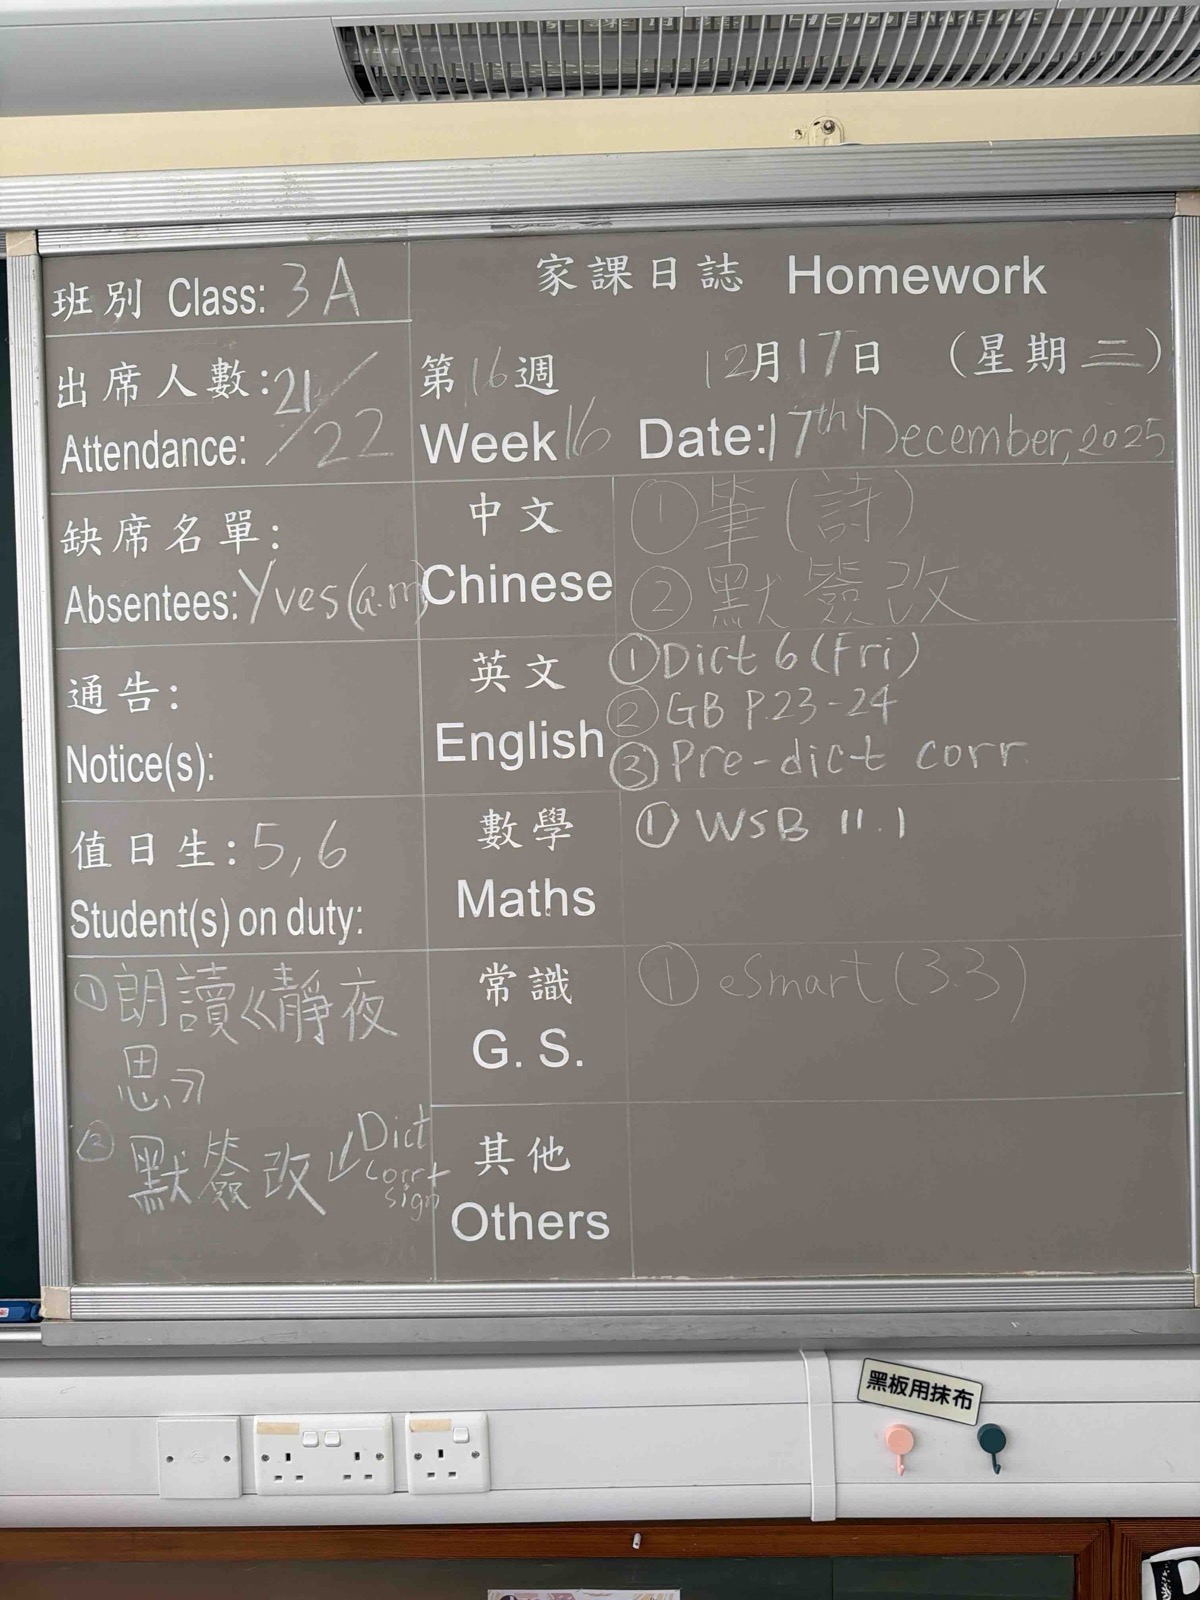 班別 Class: 3A
家課日誌 Homework
出席人數: 21/
Attendance: /22
第16週 12月17日 (星期三)
Week 16 Date: 17th December, 2025
缺席名單:
Absentees: Yves (a.m)
中文
Chinese
①筆(詩)
②默簽改
通告:
Notice(s):
英文
English
①Dict 6 (Fri)
②GB P.23-24
③Pre-dict corr.
值日生: 5, 6
Student(s) on duty:
數學
Maths
① WSB 11.1
①朗讀《靜夜
思》
②默簽改
Dict
corr+
sign
常識
G. S.
① eSmart (3.3)
其他
Others
黑板用抹布